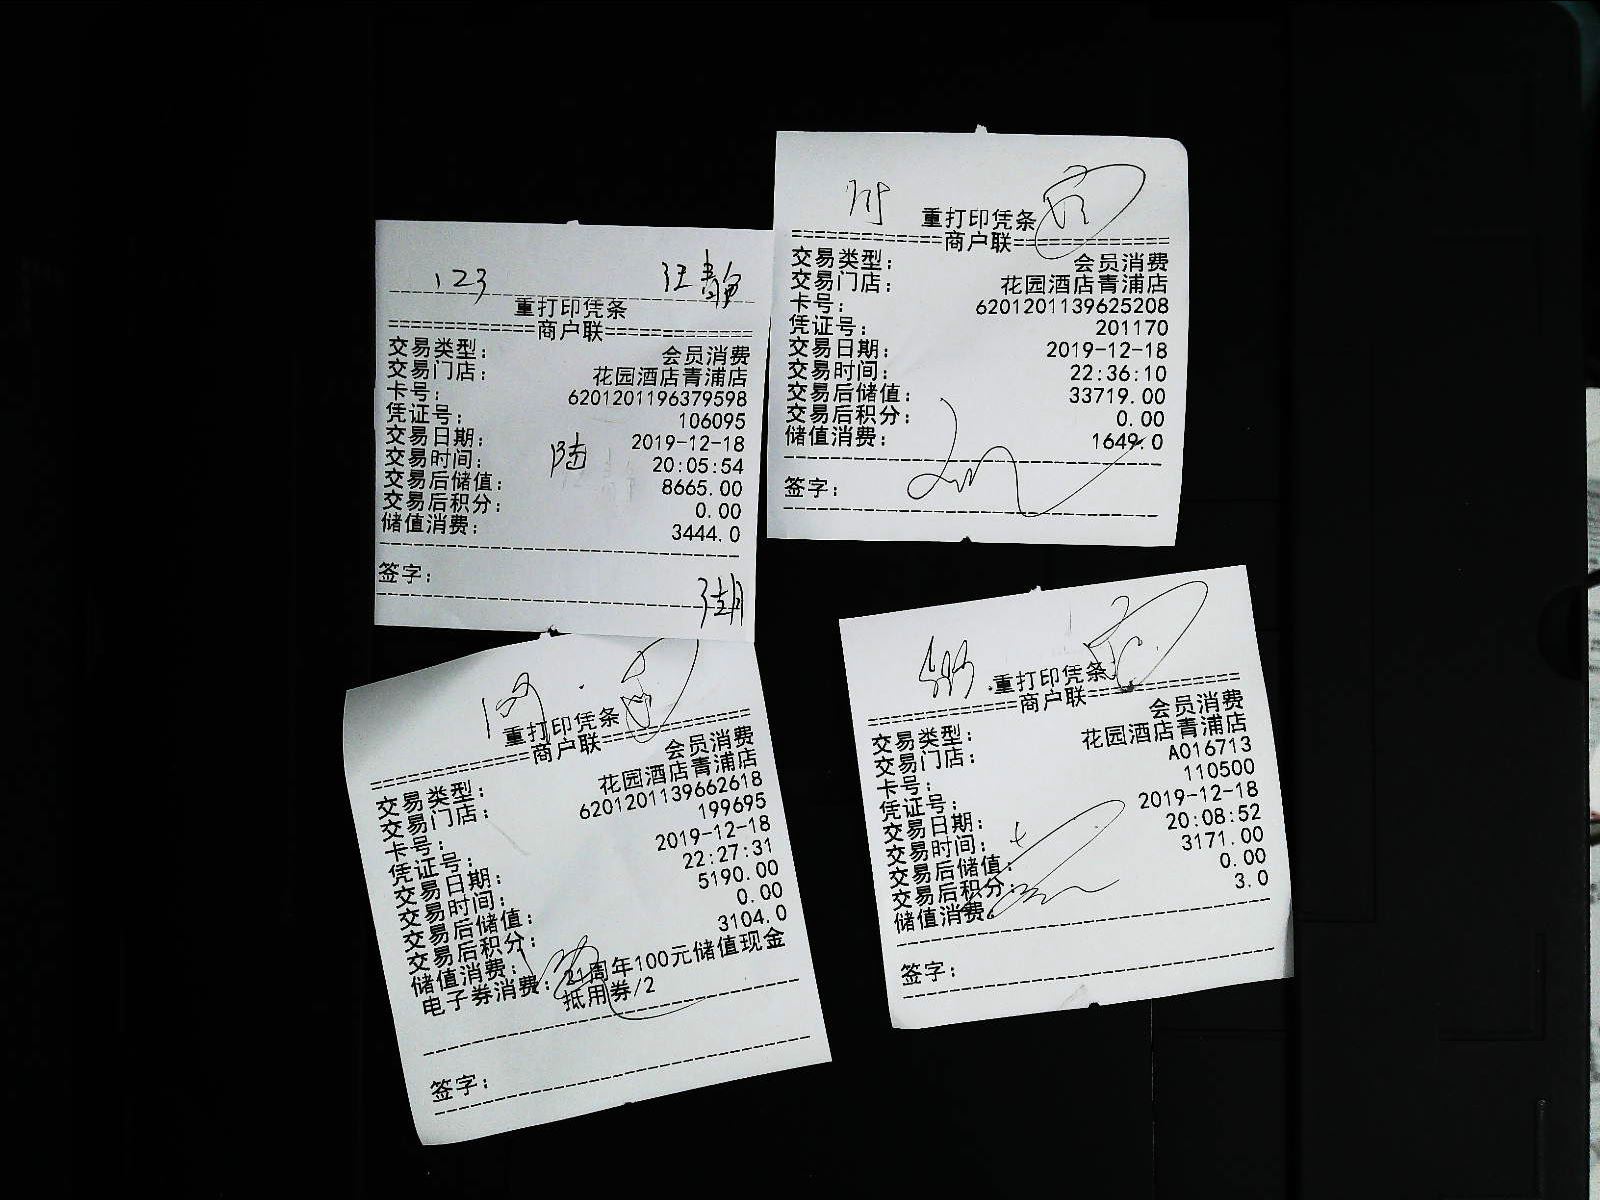 123 汪静
重打印凭条
============商户联============
交易类型: 会员消费
交易门店: 花园酒店青浦店
卡号: 6201201196379598
凭证号: 106095
交易日期: 2019-12-18
交易时间: 20:05:54
陆
交易后储值: 8665.00
交易后积分: 0.00
储值消费: 3444.0
签字:
重打印凭条
============商户联============
交易类型: 会员消费
交易门店: 花园酒店青浦店
卡号: 6201201139625208
凭证号: 201170
交易日期: 2019-12-18
交易时间: 22:36:10
交易后储值: 33719.00
交易后积分: 0.00
储值消费: 1649.0
签字:
重打印凭条
============商户联============
交易类型: 会员消费
交易门店: 花园酒店青浦店
卡号: 6201201139662618
凭证号: 199695
交易日期: 2019-12-18
交易时间: 22:27:31
交易后储值: 5190.00
交易后积分: 0.00
储值消费: 3104.0
电子券消费: 21周年100元储值现金
抵用券/2
签字:
重打印凭条
============商户联============
交易类型: 会员消费
交易门店: 花园酒店青浦店
卡号: A016713
凭证号: 110500
交易日期: 2019-12-18
交易时间: 20:08:52
交易后储值: 3171.00
交易后积分: 0.00
储值消费: 3.0
签字: